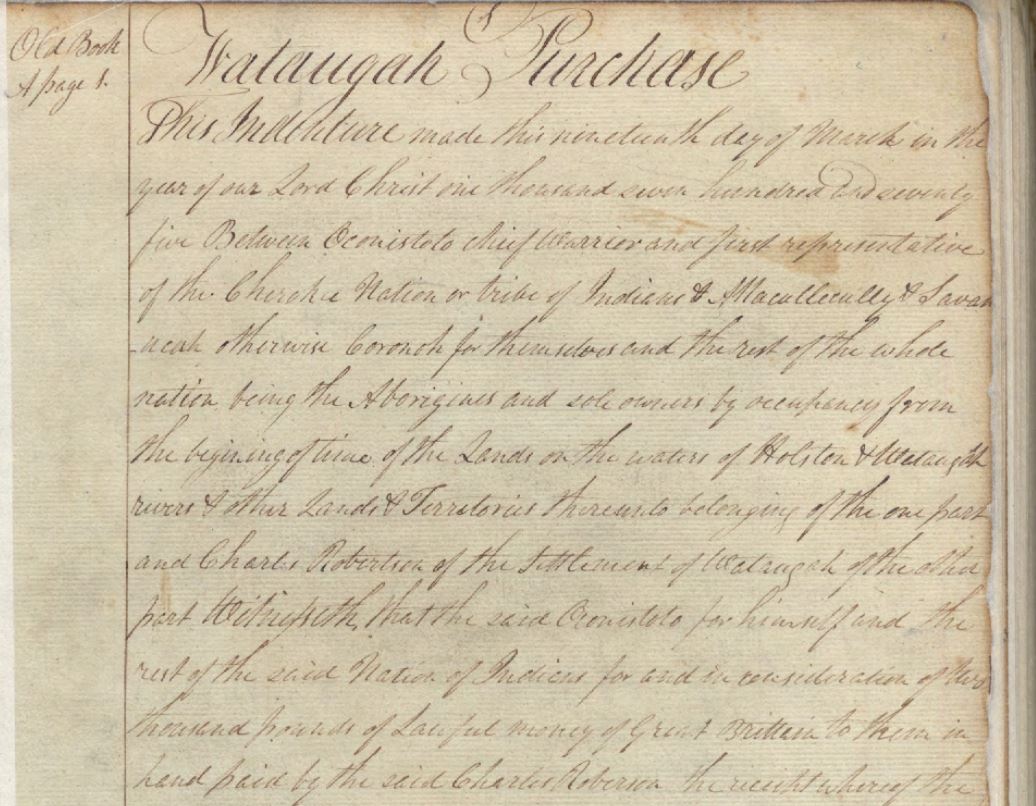 Old Book
A page 1.
Wataugah Purchase
This Indenture made this nineteenth day of March in the
year of our Lord Christ one thousand seven hundred and seventy
five Between Oconistoto chief Warrior and first representative
of the Cherokee Nation or tribe of Indians & Attacullecully & Savan
-ucah otherwise Coronoh for themselves and the rest of the whole
nation being the Aborigines and sole owners by occupancy from
the begining of time of the Lands on the waters of Holston & Wataugah
rivers & other Lands & Territories thereunto belonging of the one part
and Charles Robertson of the Settlement of Wataugah of the other
part Witnesseth, that the said Oconistoto for himself and the
rest of the said Nation of Indians for and in consideration of two
thousand pounds of Lawful money of Great Brittain to them in
hand paid by the said Charles Roberson the receipt whereof the